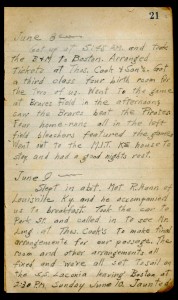 21
June 8
Got up at 5:45 AM. and took
the B+M to Boston. Arranged
Tickets at Thos. Cook & Son's. Got
a third class four birth room for
the two of us. Went to the game
at Braves Field in the afternoon,
saw the Braves beat the Pirates.
Four home-runs all in the left
field bleachers featured the game.
Went out to the M.I.T. house to
stay and had a good nights rest.
June 9
Slept in abit. Met R. of
Louisville Ky. and he accompanied
us to breakfast. Took the tour to
Park St. and called in to see Mr
Long at Thos. Cooks to make final
arrangements for our passage. The
room and other arrangements all
fixed and were all set. To sail in
the S.S. Laconia leaving Boston at
2:30 P.M. Sunday June 10. Jaunted